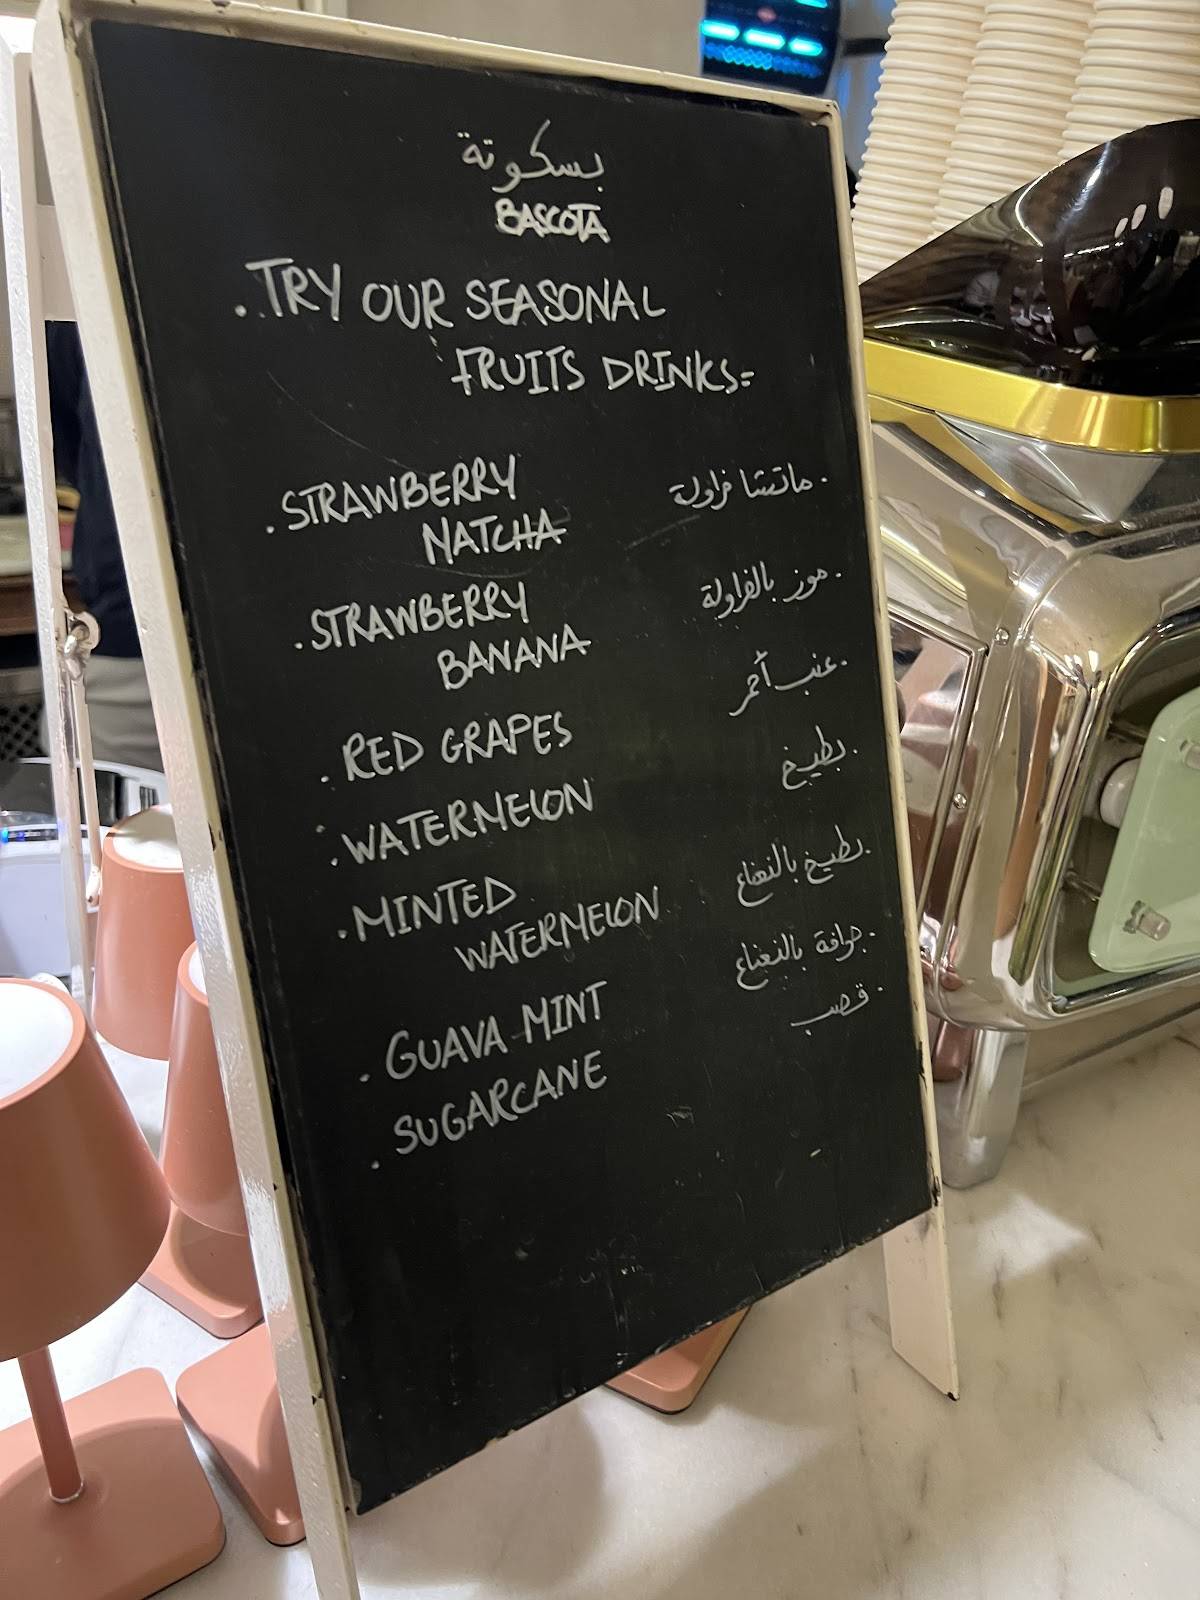 بسكوتة
BASCOTA
. TRY OUR SEASONAL
FRUITS DRINKS=
. STRAWBERRY
MATCHA
. ماتشا فراولة
. STRAWBERRY
BANANA
. موز بالفراولة
. RED GRAPES
. عنب أحمر
. WATERMELON
. بطيخ
. MINTED
WATERMELON
. بطيخ بالنعناع
. GUAVA MINT
. جوافة بالنعناع
. SUGARCANE
. قصب